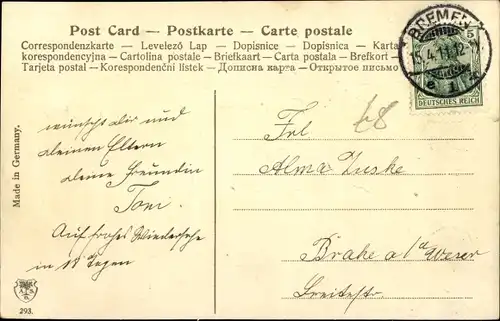 Post Card — Postkarte — Carte postale
Correspondenzkarte — Levelező Lap — Dopisnice — Dopisnica — Karta
korespondencyjna — Cartolina postale — Briefkaart — Carta postala — Brefkort —
Tarjeta postal — Korespondenční lístek — Дописна карта — Открытое письмо
BREMEN
5
DEUTSCHES REICH
48
wünscht dir und
deinen Eltern
deine Freundin
Toni.
Auf frohes Wiedersehn
in 10 Tagen
Frl
Alma
Brake a/d Weser
Breitestr.
Made in Germany.
293.